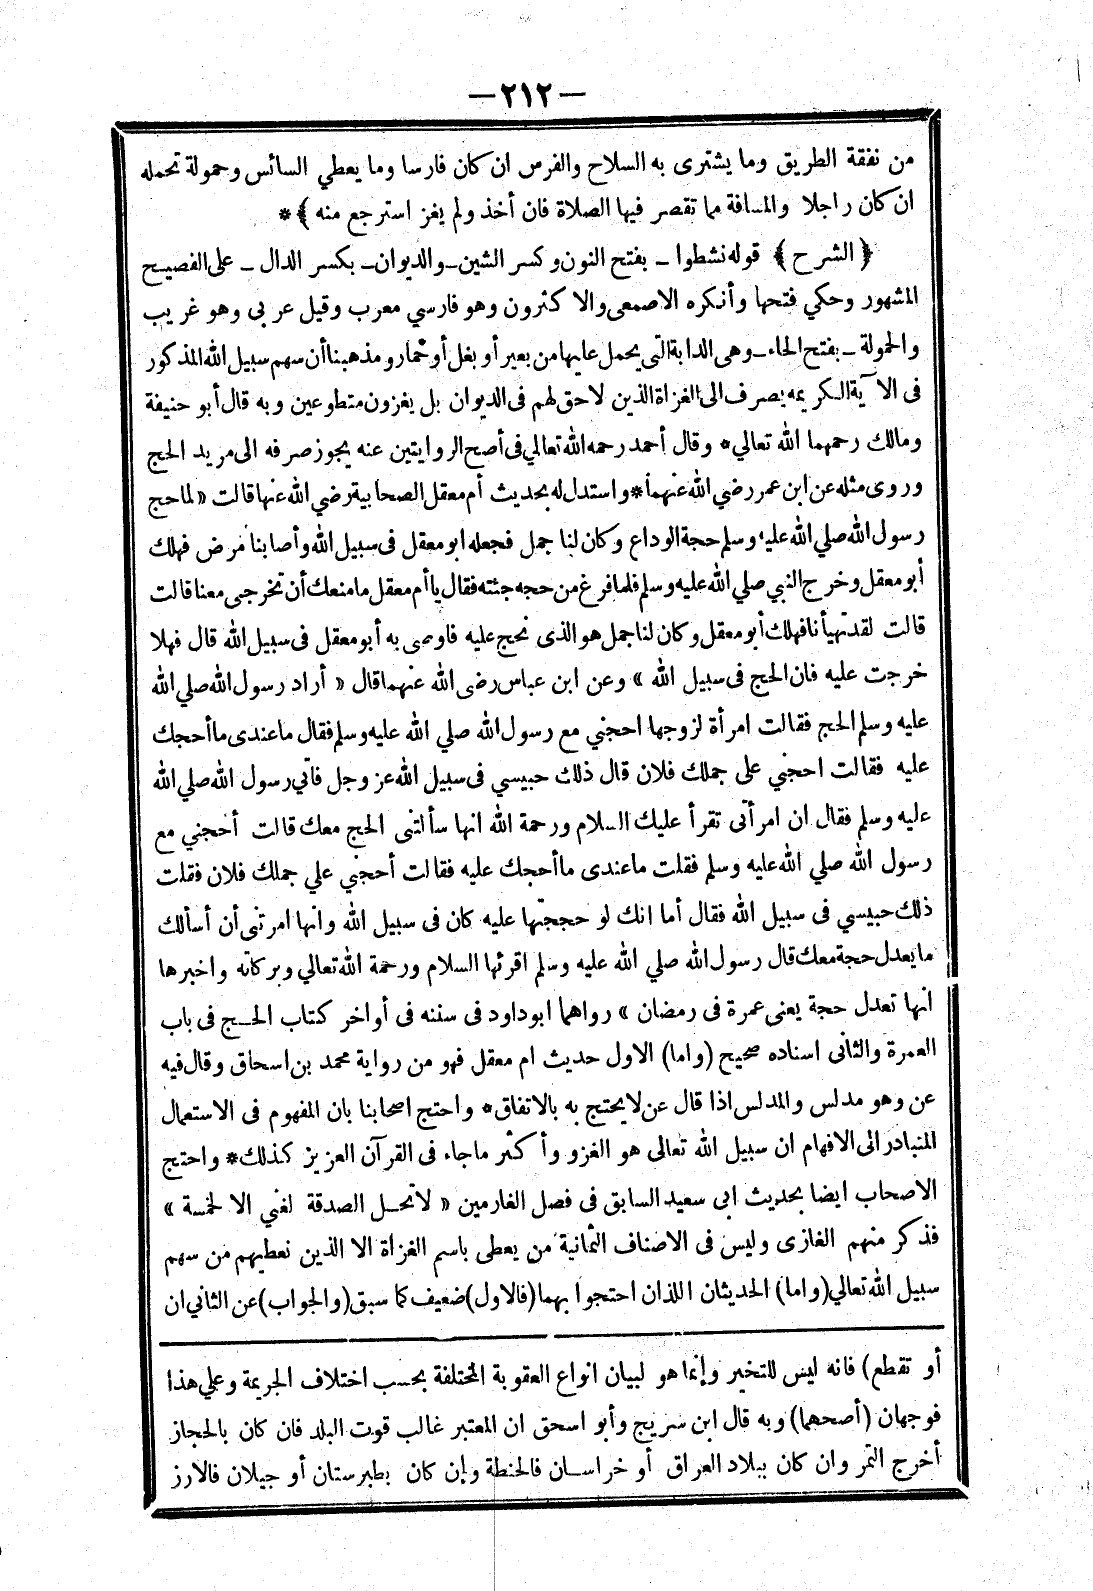 —٢١٢—
من نفقة الطريق وما يشترى به السلاح والفرس ان كان فارسا وما يعطي السائس وحمولة تحمله
ان كان راجلا والمسافة مما تقصر فيها الصلاة فان أخذ ولم يغز استرجع منه ﴾ *
﴿ الشرح ﴾ قوله نشطوا ـ بفتح النون وكسر الشين ـ والديوان ـ بكسر الدال ـ على الفصيح
المشهور وحكي فتحها وأنكره الاصمعى والا كثرون وهو فارسي معرب وقيل عربى وهو غريب
والحمولة ـ بفتح الحاء ـ وهى الدابة التى يحمل عليها من بعير أو بغل أو حمار ومذهبنا أن سهم سبيل الله المذكور
فى الآية الكريمه يصرف الى الغزاة الذين لا حق لهم فى الديوان بل يغزون متطوعين وبه قال أبو حنيفة
ومالك رحمهما الله تعالي * وقال أحمد رحمه الله تعالي فى أصح الروايتين عنه يجوز صرفه الى مريد الحج
وروى مثله عن ابن عمر رضي الله عنهما * واستدل له بحديث أم معقل الصحابية رضي الله عنها قالت « لما حج
رسول الله صلي الله عليه وسلم حجة الوداع وكان لنا جمل فجعله ابو معقل فى سبيل الله وأصابنا مرض فهلك
أبو معقل وخرج النبي صلي الله عليه وسلم فلما فرغ من حجه جئته فقال يا أم معقل ما منعك أن تخرجى معنا قالت
قالت لقد تهيأنا فهلك أبو معقل وكان لنا جمل هو الذى نحج عليه فاوصى به أبو معقل فى سبيل الله قال فهلا
خرجت عليه فان الحج فى سبيل الله » وعن ابن عباس رضى الله عنهما قال « أراد رسول الله صلي الله
عليه وسلم الحج فقالت امرأة لزوجها احجني مع رسول الله صلي الله عليه وسلم فقال ما عندى ما أحجك
عليه فقالت احجني على جملك فلان قال ذلك حبيسي فى سبيل الله عز وجل فاتي رسول الله صلي الله
عليه وسلم فقال ان امرأتى تقرأ عليك السلام ورحمة الله انها سألتنى الحج معك قالت أحجني مع
رسول الله صلي الله عليه وسلم فقلت ما عندى ما أحجك عليه فقالت أحجني علي جملك فلان فقلت
ذلك حبيسي فى سبيل الله فقال أما انك لو حججتها عليه كان فى سبيل الله وانها امرتنى أن أسألك
ما يعدل حجة معك قال رسول الله صلي الله عليه وسلم اقرئها السلام ورحمة الله تعالي وبركاته واخبرها
انها تعدل حجة يعنى عمرة فى رمضان » رواهما ابو داود فى سننه فى أواخر كتاب الحـج فى باب
العمرة والثانى اسناده صحيح (واما) الاول حديث ام معقل فهو من رواية محمد بن اسحاق وقال فيه
عن وهو مدلس والمدلس اذا قال عن لا يحتج به بالاتفاق * واحتج اصحابنا بان المفهوم فى الاستعمال
المتبادر الى الافهام ان سبيل الله تعالى هو الغزو وأكثر ما جاء فى القرآن العزيز كذلك * واحتج
الاصحاب ايضا بحديث ابى سعيد السابق فى فصل الغارمين « لا تحـل الصدقة لغني الا لخمسة »
فذكر منهم الغازى وليس فى الاصناف الثمانية من يعطى باسم الغزاة الا الذين نعطيهم من سهم
سبيل الله تعالي (واما) الحديثان اللذان احتجوا بهما (فالاول) ضعيف كما سبق (والجواب) عن الثاني ان
أو تقطع) فانه ليس للتخير وإنما هو لبيان انواع العقوبة المختلفة بحسب اختلاف الجريمة وعلي هذا
فوجهان (أصحهما) وبه قال ابن سريج وأبو اسحق ان المعتبر غالب قوت البلد فان كان بالحجاز
أخرج التمر وان كان ببلاد العراق أو خراسـان فالحنطة وإن كان بطبرستان أو جيلان فالارز